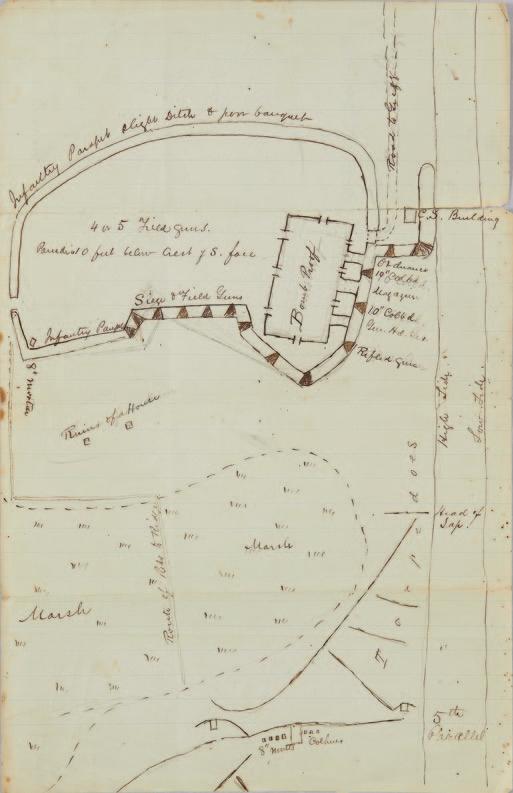 Road to Gregg
Infantry Parapet slight Ditch & poor banquet
C.S. Building
4 or 5 Field guns.
Parade 10 feet below Crest of S. face
Bomb Proof
Ordnance
10" Colbd
Magazine
Siege & Field Guns
10" Colbd
Infantry Parapet
Rifled gun
8" Mortar
High Tide
Low Tide
Ruins of a House
Torpedoes
Head of
Sap.
Marsh
Marsh
5th
Parallel
8" Morts
Cohorns